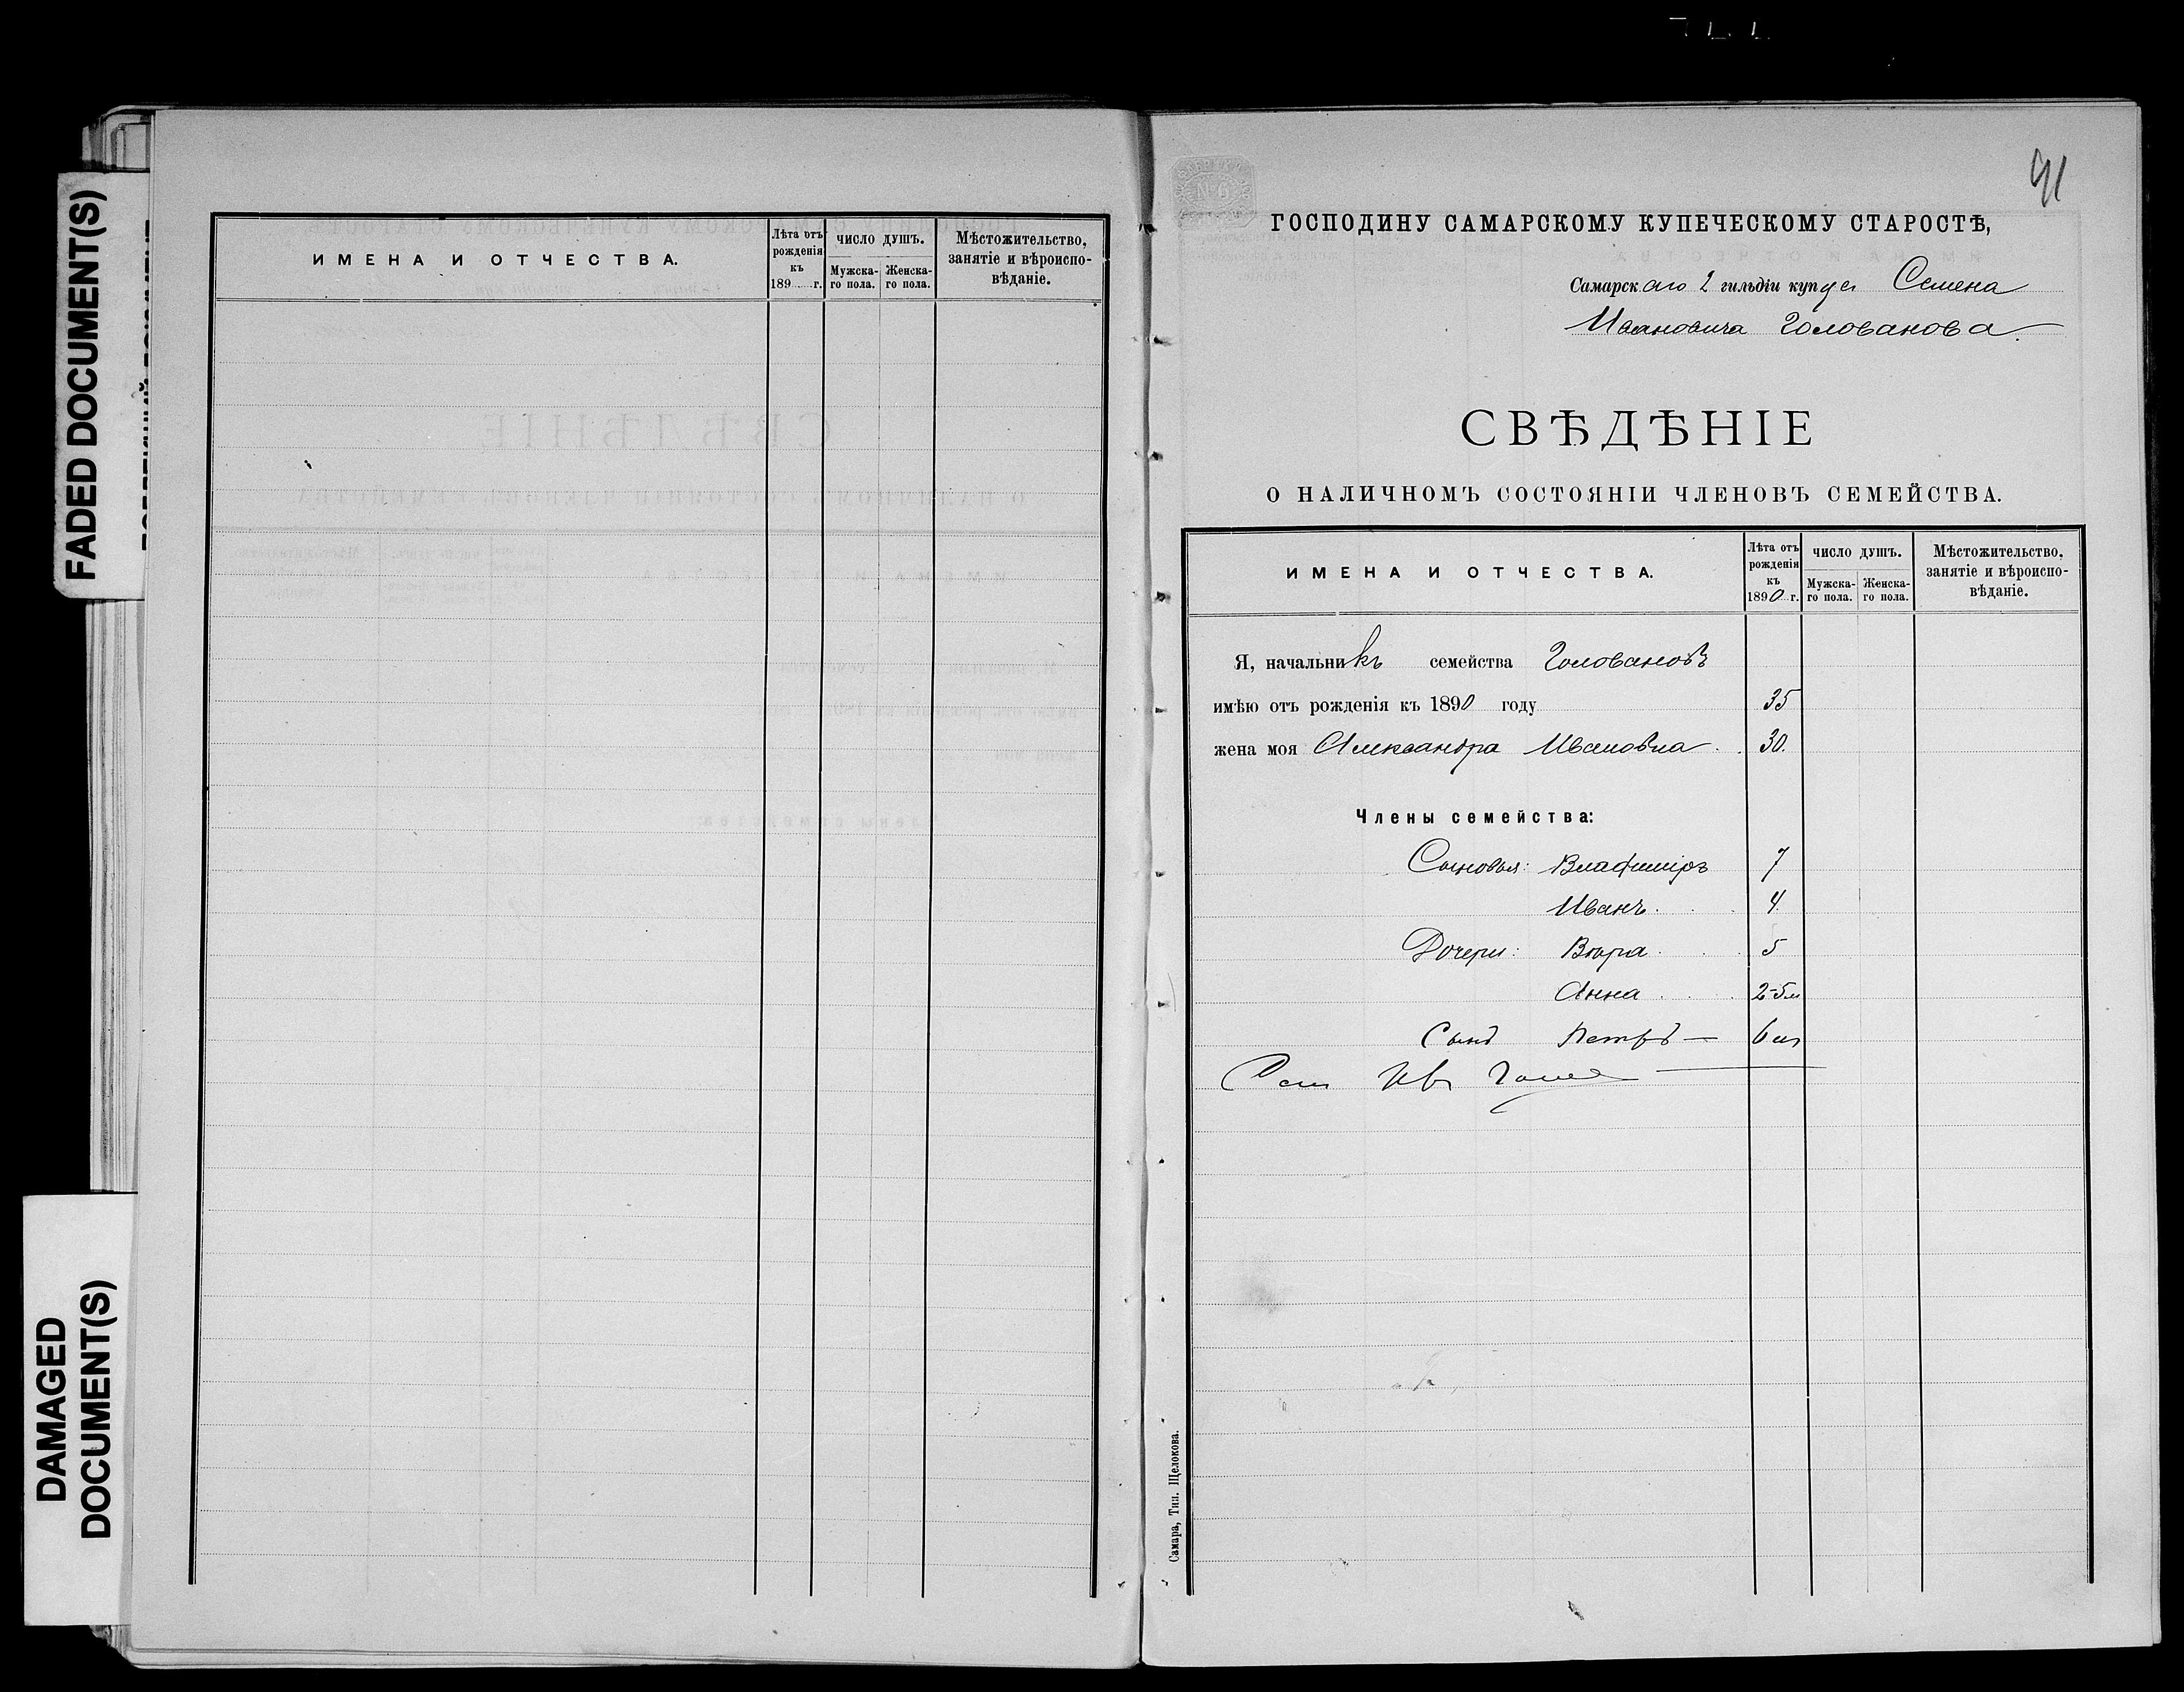 FADED DOCUMENT(S)
DAMAGED
DOCUMENT(S)
ИМЕНА И ОТЧЕСТВА.
Лѣта отъ
рожденія
къ
189 г.
ЧИСЛО ДУШЪ.
Мужска-
го пола.
Женска-
го пола.
Мѣстожительство,
занятіе и вѣроиспо-
вѣданіе.
№6
ГОСПОДИНУ САМАРСКОМУ КУПЕЧЕСКОМУ СТАРОСТѢ,
Самарскаго 2 гильдіи купца Семена
Ивановича Голованова.
СВѢДѢНІЕ
О НАЛИЧНОМЪ СОСТОЯНІИ ЧЛЕНОВЪ СЕМЕЙСТВА.
ИМЕНА И ОТЧЕСТВА.
Лѣта отъ
рожденія
къ
1890 г.
ЧИСЛО ДУШЪ.
Мужска-
го пола.
Женска-
го пола.
Мѣстожительство,
занятіе и вѣроиспо-
вѣданіе.
Я, начальникъ семейства Головановъ
имѣю отъ рожденія къ 1890 году 35
жена моя Александра Ивановна 30.
Члены семейства:
Сыновья: Владиміръ 7
Иванъ. 4
Дочери: Вѣра. 5
Анна 2-5м
Сынъ Петръ — 6 м
Самара, Тип. Щелокова.